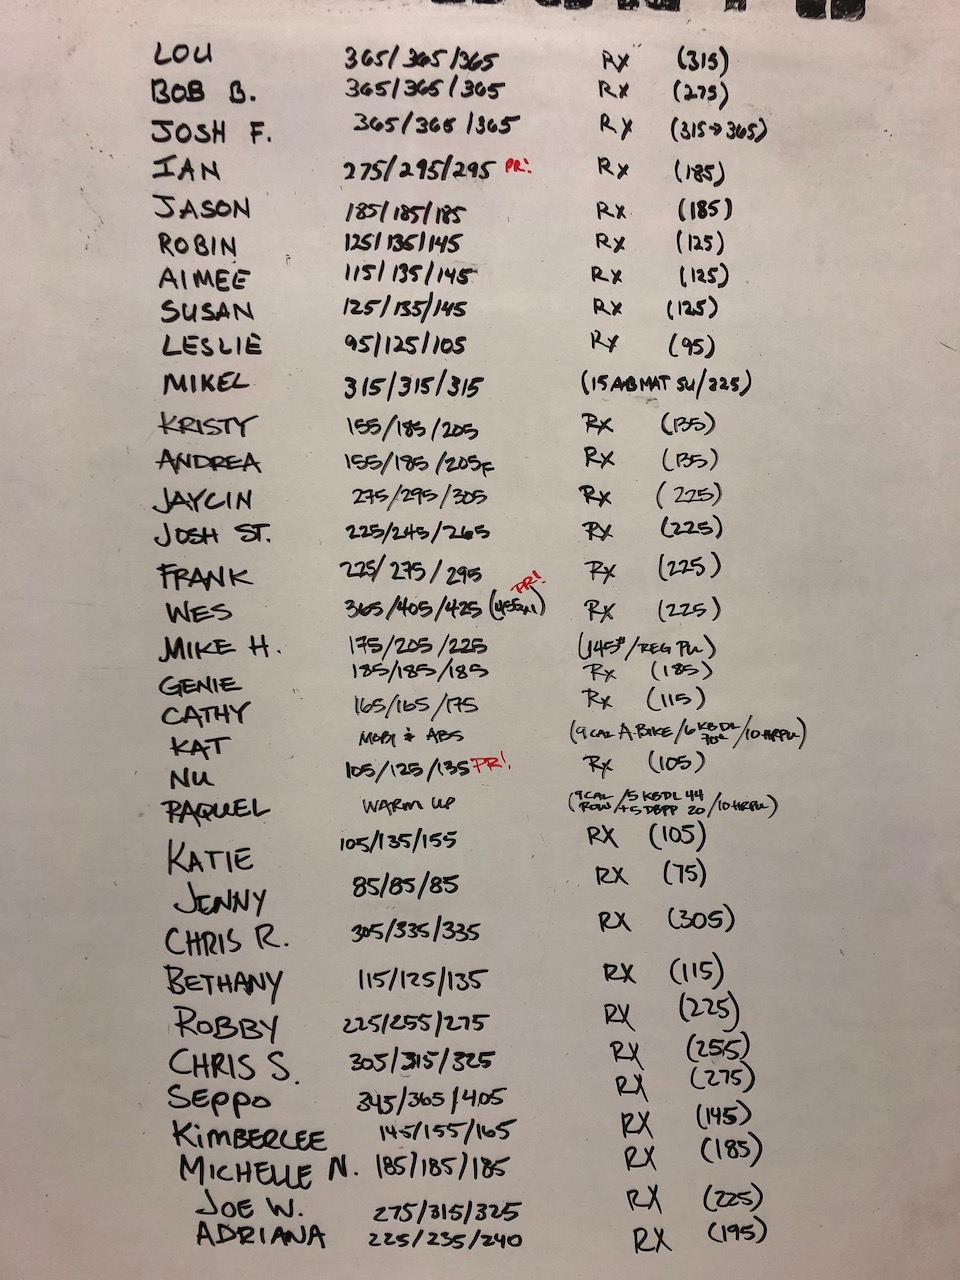 LOU 365/365/365 RX (315)
BOB B. 365/365/365 RX (275)
JOSH F. 365/365/365 RX (315→365)
IAN 275/295/295 PR! RX (185)
JASON 185/185/185 RX (185)
ROBIN 125/135/145 RX (125)
AIMEE 115/135/145 RX (125)
SUSAN 125/135/145 RX (125)
LESLIE 95/125/105 RX (95)
MIKEL 315/315/315 (15 ABMAT SU/225)
KRISTY 155/185/205 RX (135)
ANDREA 155/185/205F RX (135)
JAYCIN 275/295/305 RX (225)
JOSH ST. 225/245/265 RX (225)
FRANK 225/275/295 RX (225)
WES 365/405/425 (455x1) PR! RX (225)
MIKE H. 175/205/225 (145#/REG PU)
GENIE 185/185/185 RX (185)
CATHY 165/165/175 RX (115)
KAT MOBI & ABS (9 CAL A.BIKE/6 KBDL 70#/10 HRPU)
NU 105/125/135 PR! RX (105)
RAQUEL WARM UP (9 CAL ROW/5 KBDL 44 +5 DBPP 20/10 HRPU)
KATIE 105/135/155 RX (105)
JENNY 85/85/85 RX (75)
CHRIS R. 305/335/335 RX (305)
BETHANY 115/125/135 RX (115)
ROBBY 225/255/275 RX (225)
CHRIS S. 305/315/325 RX (255)
SEPPO 345/365/405 RX (275)
KIMBERLEE 145/155/165 RX (145)
MICHELLE N. 185/185/185 RX (185)
JOE W. 275/315/325 RX (225)
ADRIANA 225/235/240 RX (195)